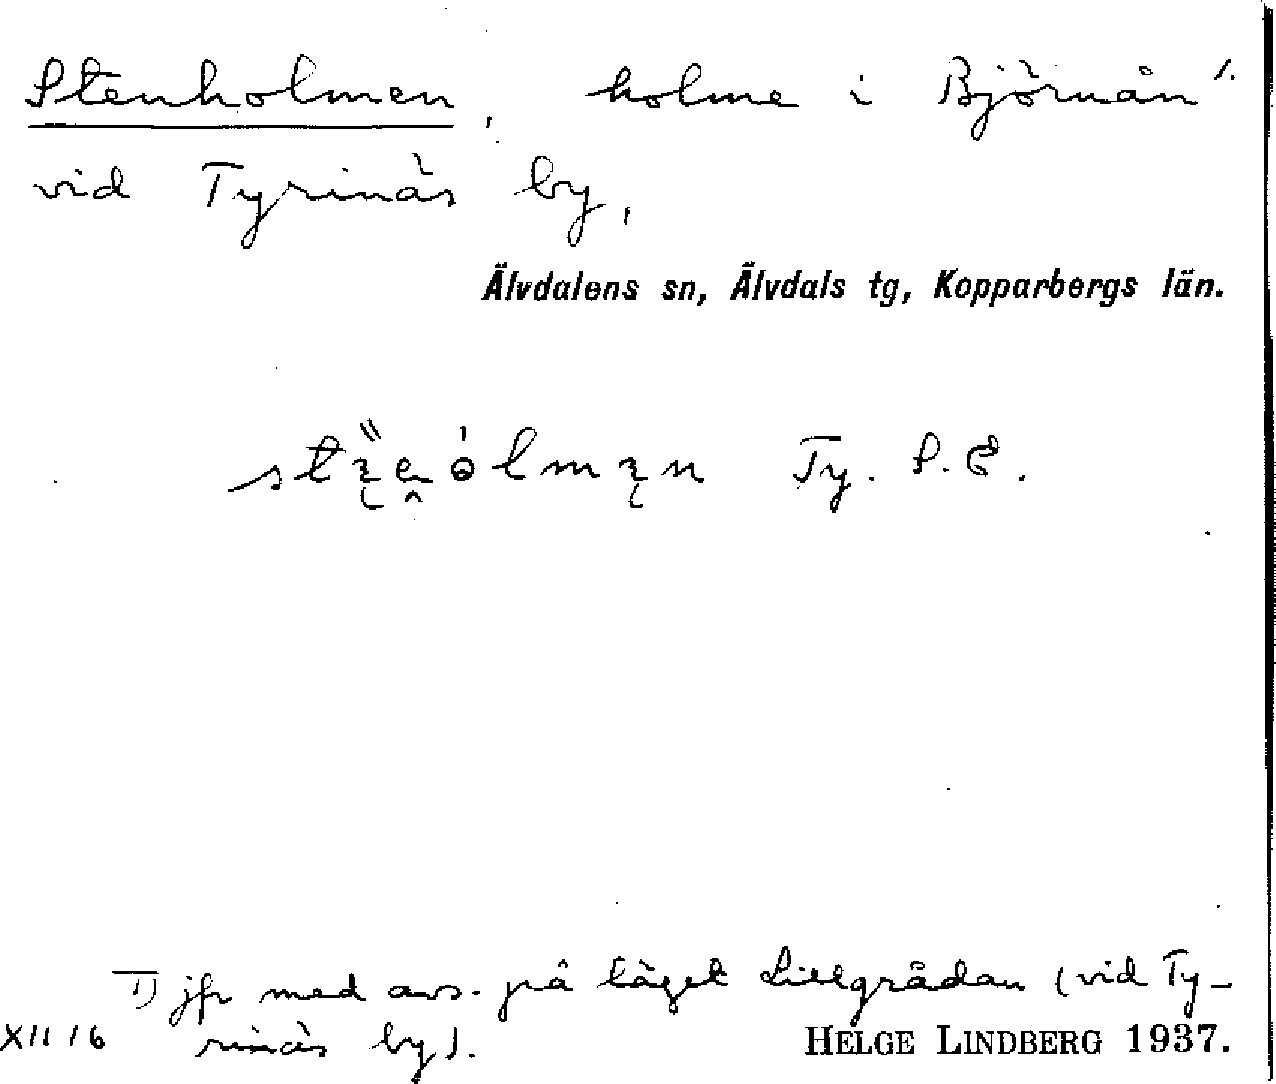 Stenholmen, holme i Björnån 1.
vid Tyrinäs by,
Älvdalens sn, Älvdals tg, Kopparbergs län.
Ty. S. E.
1) jfr med avs. på läget Lillgrådan (vid Ty-
rinäs by).
XII 16
HELGE LINDBERG 1937.